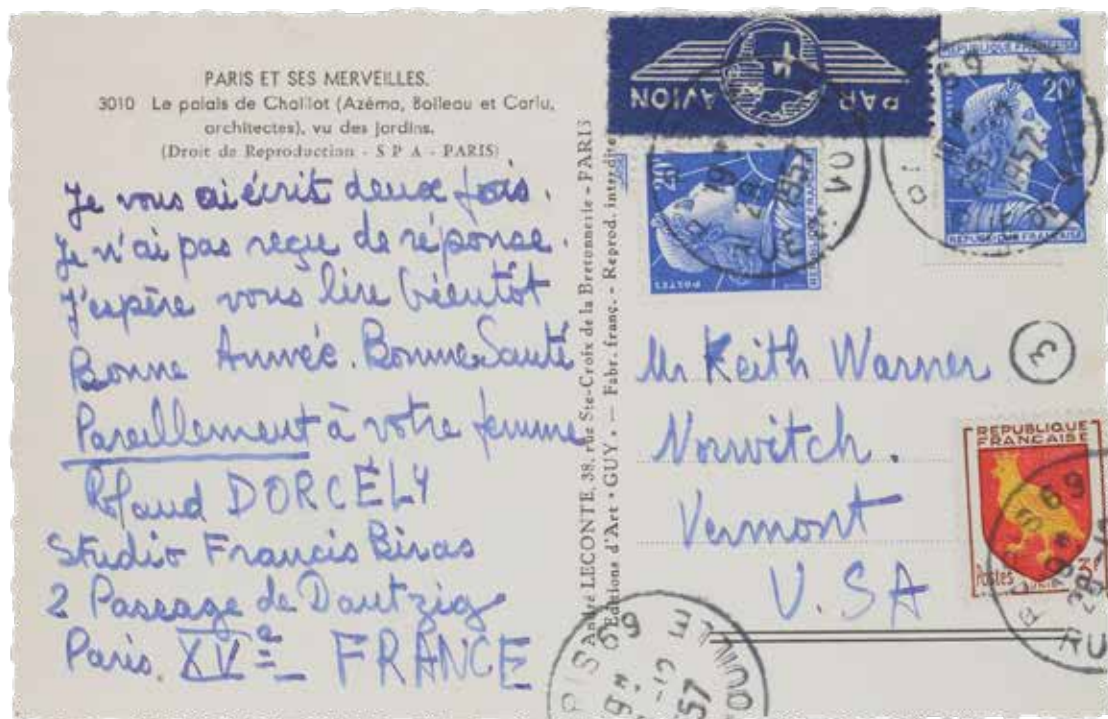 PARIS ET SES MERVEILLES.
3010 Le palais de Chaillot (Azéma, Boileau et Carlu,
architectes), vu des jardins.
(Droit de Reproduction - S P A - PARIS)
Je vous ai écrit deux fois.
Je n'ai pas reçu de réponse.
J'espère vous lire bientôt
Bonne Année. Bonne Santé
Pareillement à votre femme
Roland DORCÉLY
Studio Francis Biras
2 Passage de Dantzig
Paris. XVe FRANCE
André LECONTE, 38, rue Ste-Croix de la Bretonnerie - PARIS
Editions d'Art "GUY". — Fabr. franç. - Reprod. interdite
PAR AVION
REPUBLIQUE FRANÇAISE
20F
REPUBLIQUE FRANÇAISE
20F
POSTES
Mr Keith Warner
3
Norwitch.
Vermont
U.S.A
REPUBLIQUE
FRANÇAISE
Postes
3F
1957
1957
PARIS 69